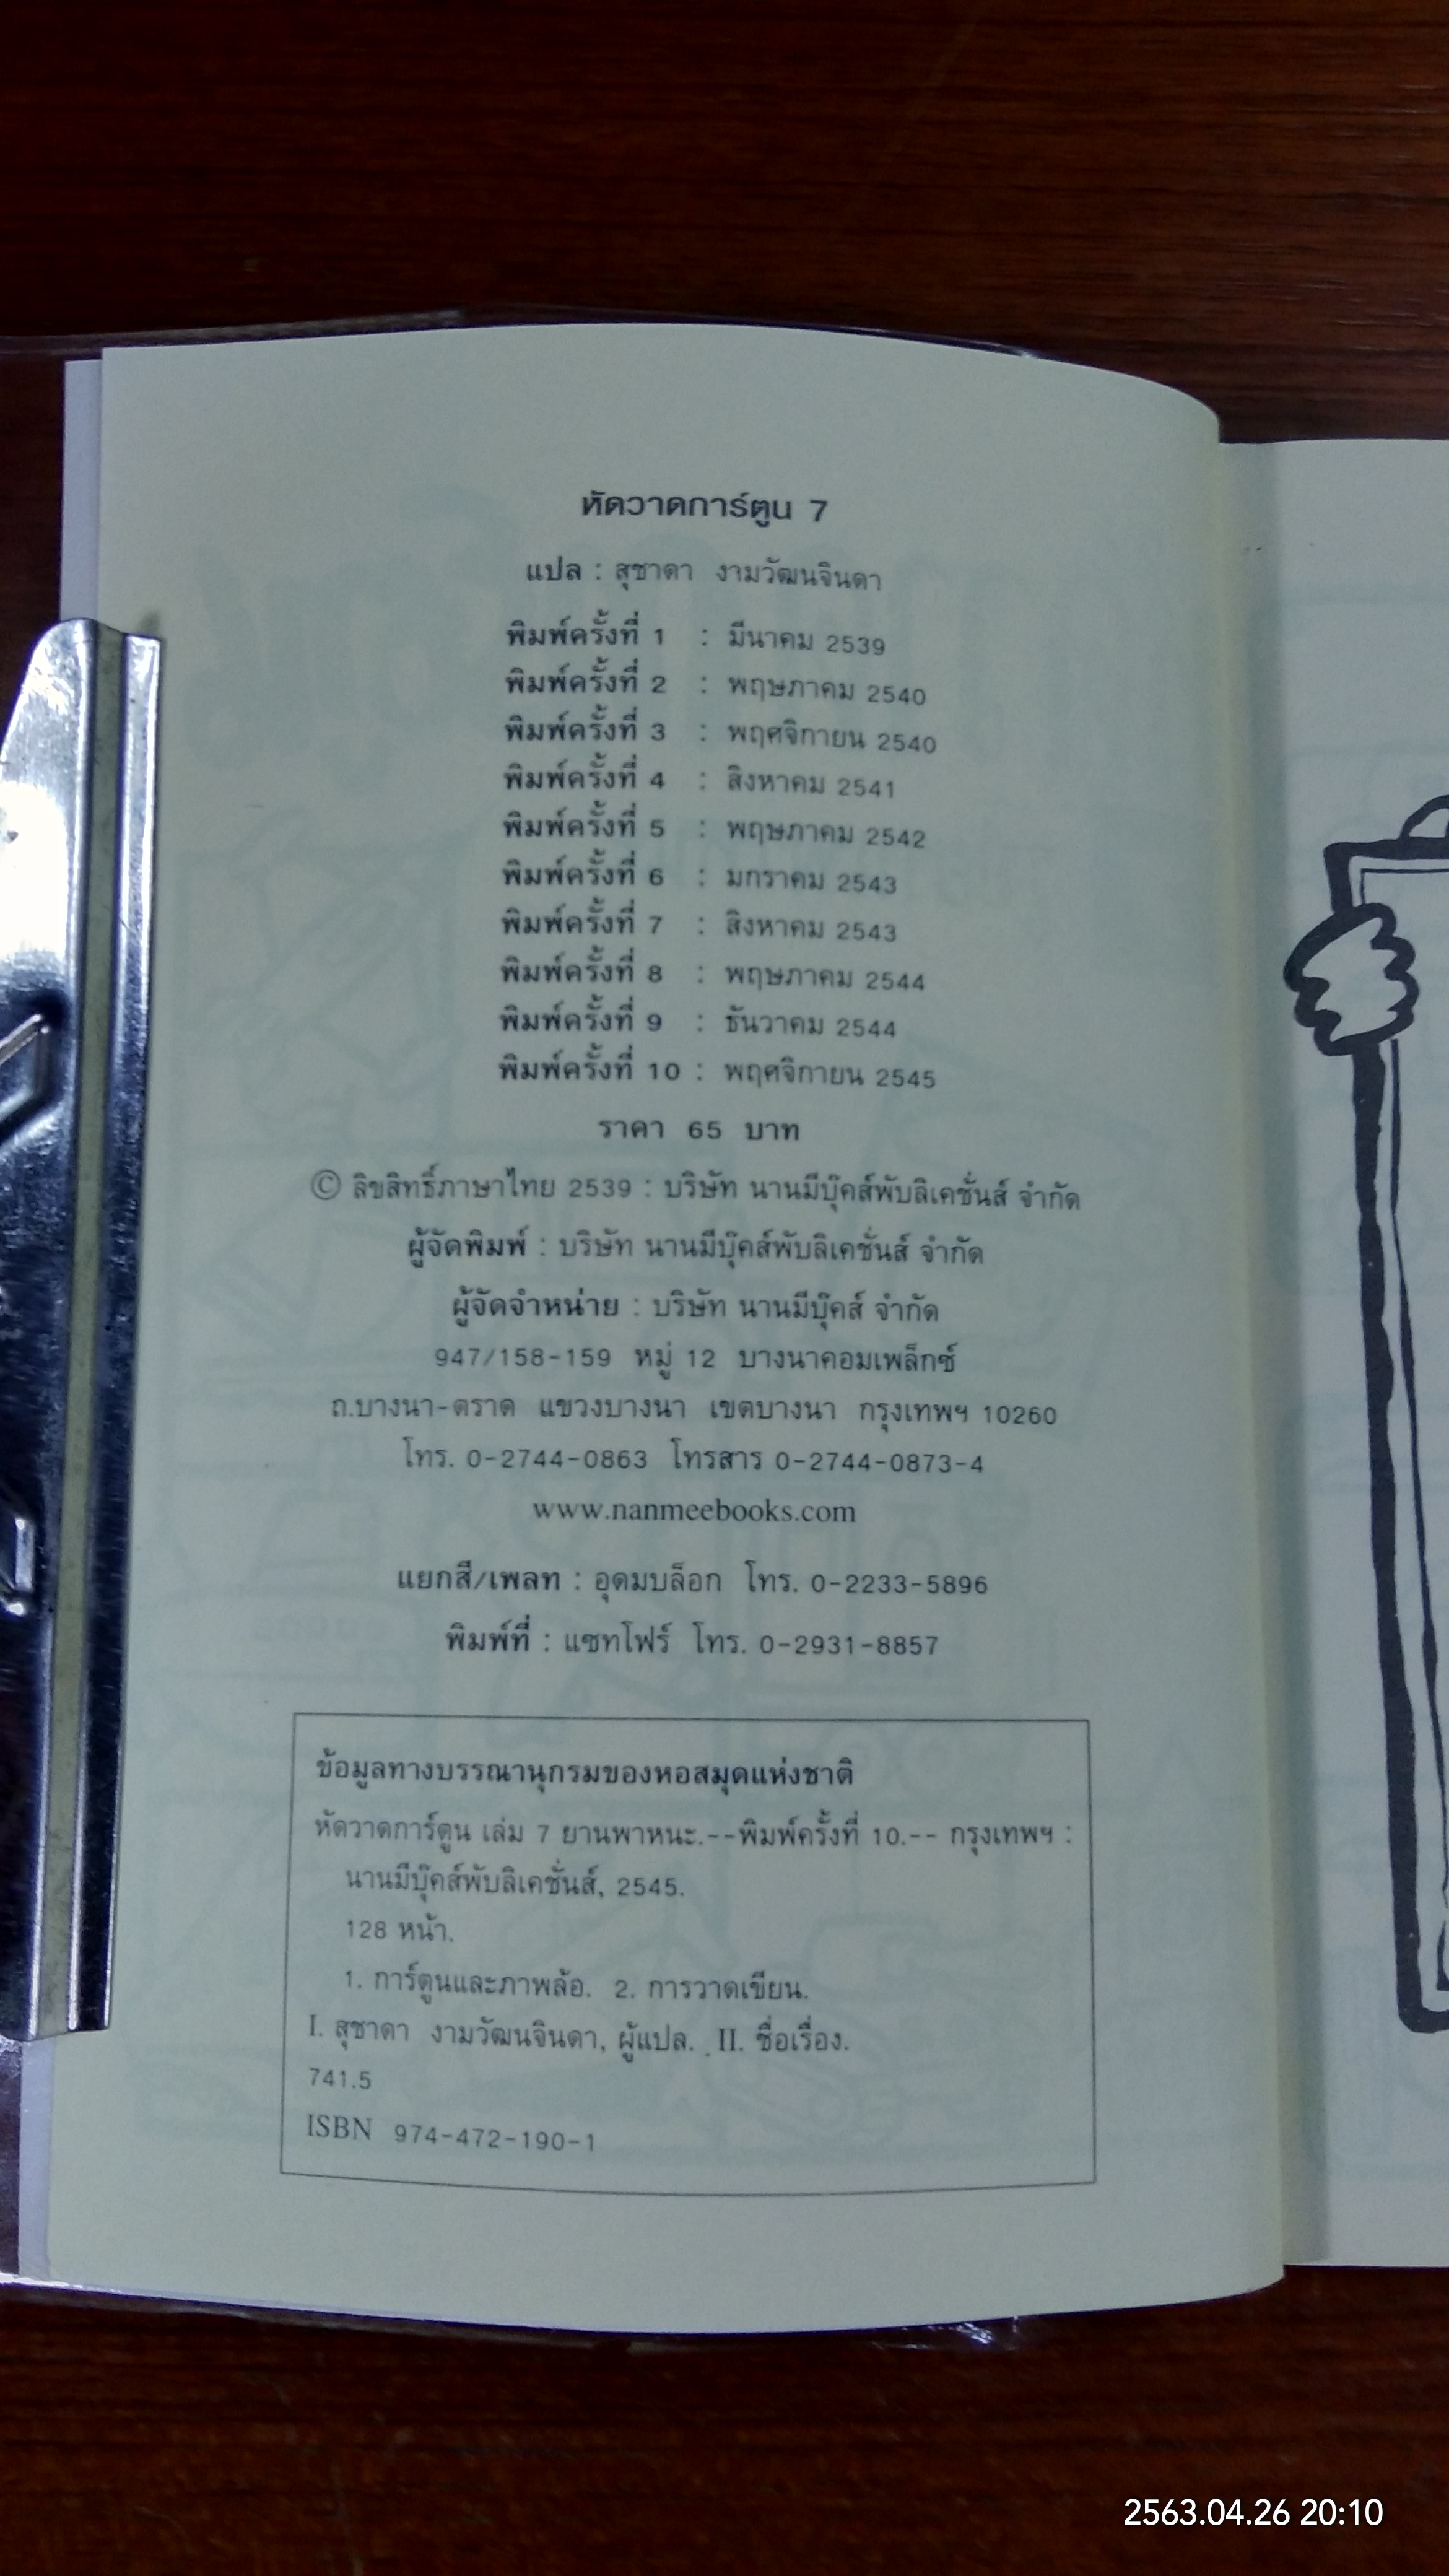 หัดวาดการ์ตูน 7
แปล : สุชาดา งามวัฒนจินดา
พิมพ์ครั้งที่ 1 : มีนาคม 2539
พิมพ์ครั้งที่ 2 : พฤษภาคม 2540
พิมพ์ครั้งที่ 3 : พฤศจิกายน 2540
พิมพ์ครั้งที่ 4 : สิงหาคม 2541
พิมพ์ครั้งที่ 5 : พฤษภาคม 2542
พิมพ์ครั้งที่ 6 : มกราคม 2543
พิมพ์ครั้งที่ 7 : สิงหาคม 2543
พิมพ์ครั้งที่ 8 : พฤษภาคม 2544
พิมพ์ครั้งที่ 9 : ธันวาคม 2544
พิมพ์ครั้งที่ 10 : พฤศจิกายน 2545
ราคา 65 บาท
© ลิขสิทธิ์ภาษาไทย 2539 : บริษัท นานมีบุ๊คส์พับลิเคชั่นส์ จำกัด
ผู้จัดพิมพ์ : บริษัท นานมีบุ๊คส์พับลิเคชั่นส์ จำกัด
ผู้จัดจำหน่าย : บริษัท นานมีบุ๊คส์ จำกัด
947/158-159 หมู่ 12 บางนาคอมเพล็กซ์
ถ.บางนา-ตราด แขวงบางนา เขตบางนา กรุงเทพฯ 10260
โทร. 0-2744-0863 โทรสาร 0-2744-0873-4
www.nanmeebooks.com
แยกสี/เพลท : อุดมบล็อก โทร. 0-2233-5896
พิมพ์ที่ : แซทโฟร์ โทร. 0-2931-8857
ข้อมูลทางบรรณานุกรมของหอสมุดแห่งชาติ
หัดวาดการ์ตูน เล่ม 7 ยานพาหนะ.--พิมพ์ครั้งที่ 10.-- กรุงเทพฯ :
นานมีบุ๊คส์พับลิเคชั่นส์, 2545.
128 หน้า.
1. การ์ตูนและภาพล้อ. 2. การวาดเขียน.
I. สุชาดา งามวัฒนจินดา, ผู้แปล. II. ชื่อเรื่อง.
741.5
ISBN 974-472-190-1
2563.04.26 20:10